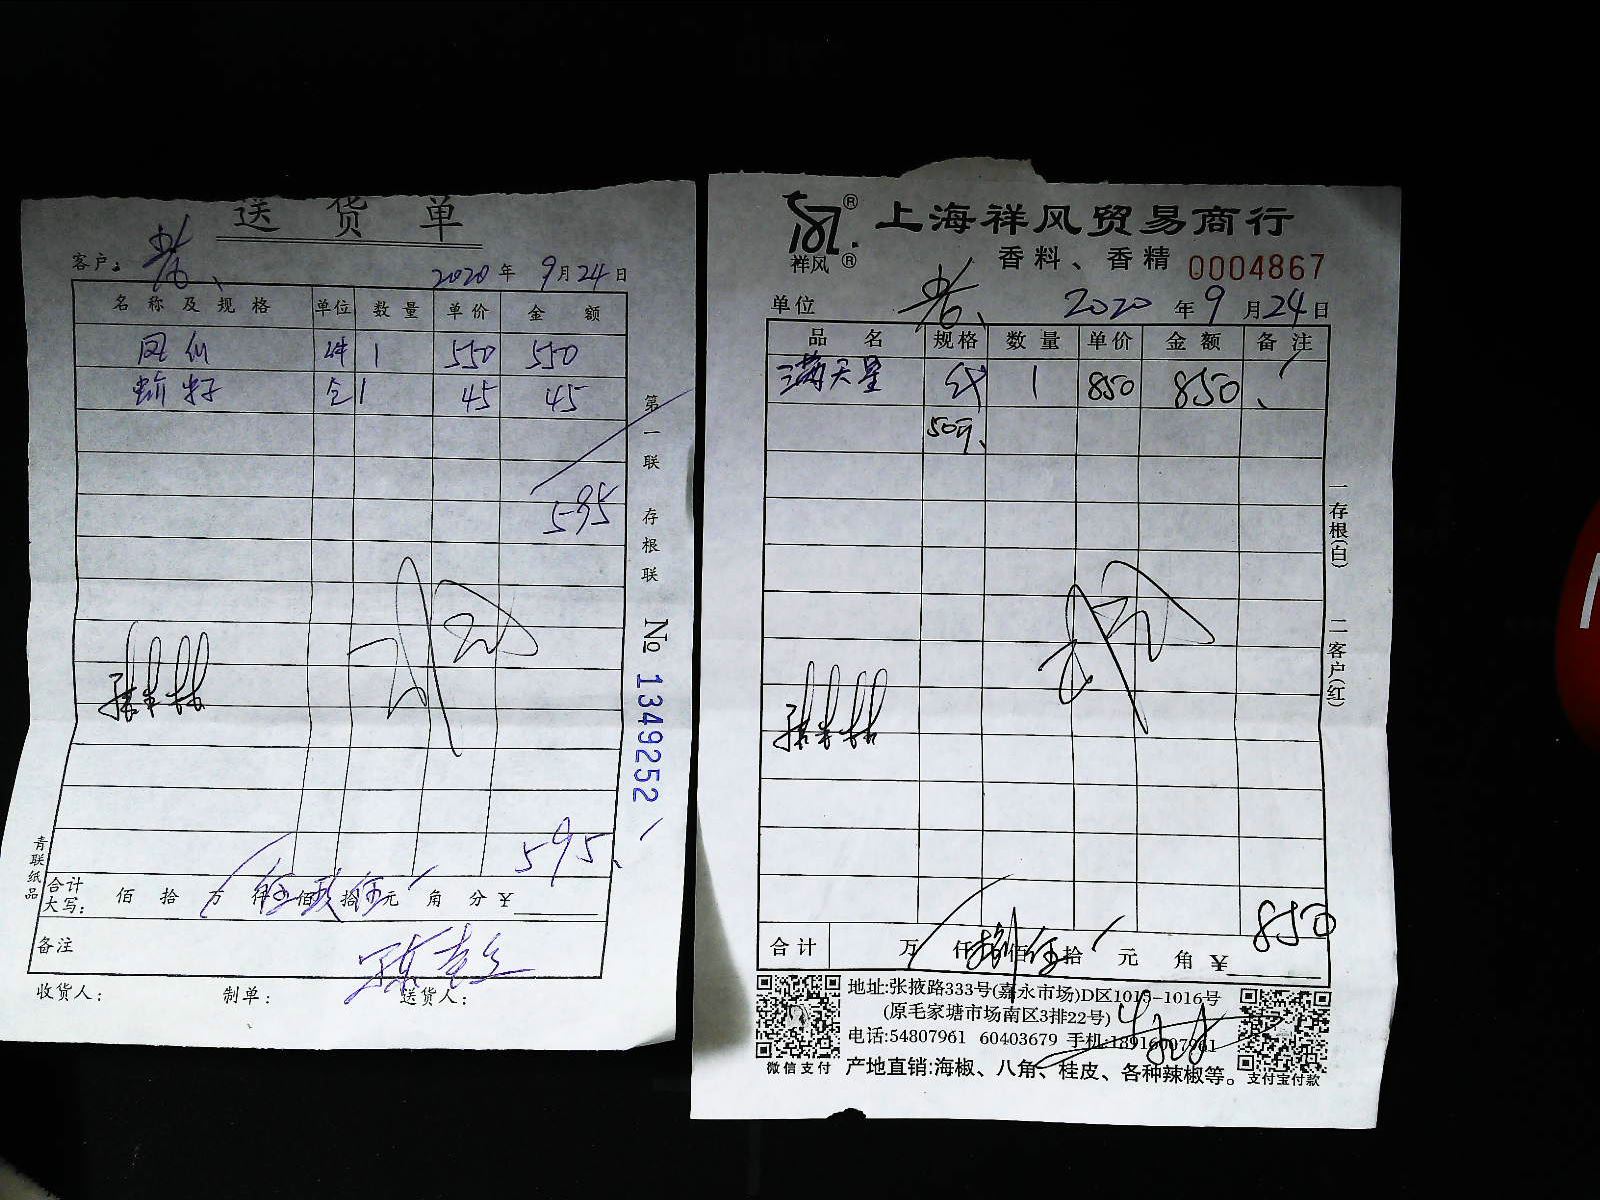 送货单
客户：
2020年9月24日
名称及规格 单位 数量 单价 金额
凤仙 件 1 550 550
1 45 45
595
第一联 存根联
№ 1349252
595
合计大写： 佰 拾 万 仟伍佰玖拾伍元 角 分 ¥
备注
收货人： 制单： 送货人：
青联纸品
祥风 ® ®
上海祥风贸易商行
香料、香精 0004867
单位 2020年9月24日
品名 规格 数量 单价 金额 备注
满天星 1 850 850
50斤
一存根(白) 二客户(红)
850
合计 万 仟捌佰伍拾 元 角 ¥
地址:张掖路333号(嘉永市场)D区1015-1016号
(原毛家塘市场南区3排22号)
电话:54807961 60403679 手机:18916007961
产地直销:海椒、八角、桂皮、各种辣椒等。
微信支付
支付宝付款